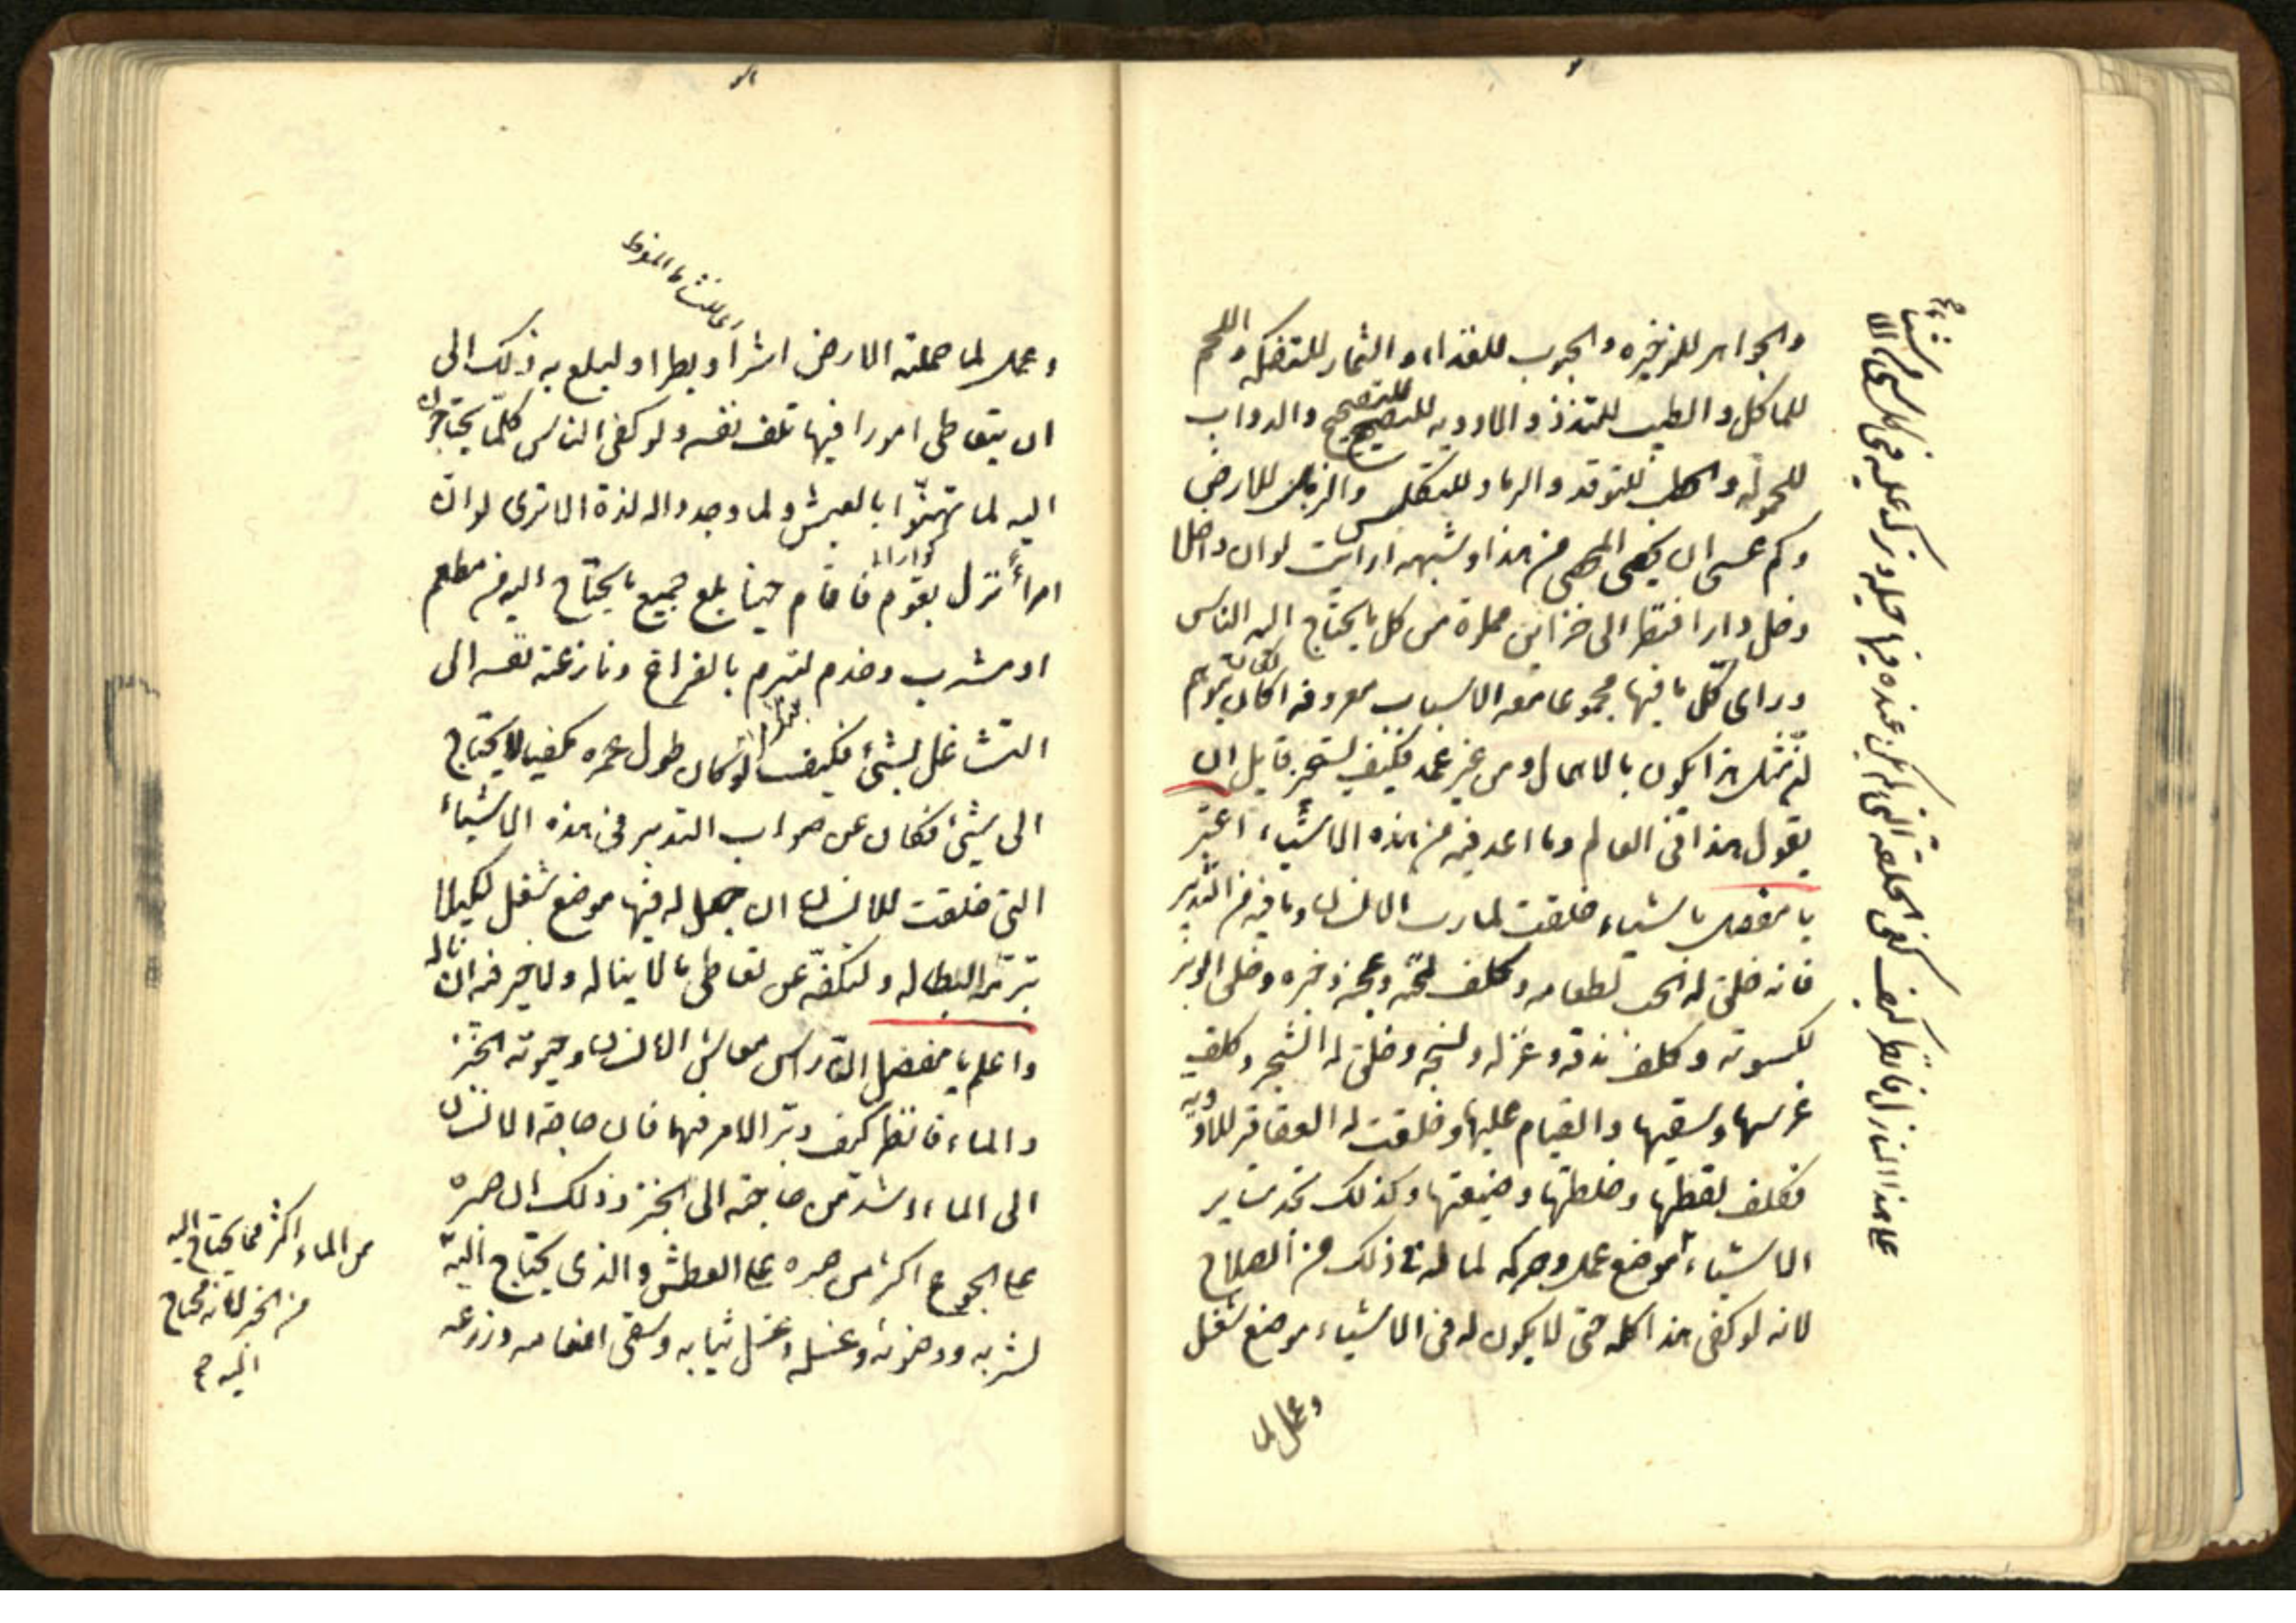 والجواهر للذخيره والحبوب للغذاء والثمار للتفكه واللحم
للماكل والطيب للتلذذ والادويه للتصحيح والدواب
للحموله والحطب للتوقد والرماد للكلس والرمل للارض
وكم عسى ان يحصى المحصى من هذا وشبهه ارايت لو ان داخلا
دخل دارا فنظر الى خزاين مملوة من كل ما يحتاج اليه الناس
وراى كل ما فيها مجموعا معدا لاسباب معروفه اكان يتوهم
ان مثل هذا يكون بالاهمال ومن غير عمد فكيف يستجيز قايل ان
يقول هذا فى العالم وما اعد فيه من هذه الاشياء اعتبر
يا مفضل باشياء خلقت لمارب الانسان وما فيها من التدبير
فانه خلق له الحب لطعامه وكلف طحنه وعجنه وخبزه وخلق له الوبر
لكسوته وكلف ندفه وغزله ونسجه وخلق له الشجر وكلف
غرسها وسقيها والقيام عليها وخلقت له العقاقير للادوية
فكلف لقطها وخلطها وصنعتها وكذلك تجد ساير
الاشياء موضع عمل وحركه لما له فى ذلك من الصلاح
لانه لو كفى هذا كله حتى لا يكون له فى الاشياء موضع شغل
وعمل لما
على هذا المنازل فانظر كيف كفى الخلقه التى لم يكن عنده فيها حيله وترك عليه فى كل شى من الا
شياء
وعمل لما حملته الارض اشرا وبطرا ولبلغ به ذلك الى
ان يتعاطى امورا فيها تلف نفسه ولو كفى الناس كلما يحتاجون
اليه لما تهنئوا بالعيش ولما وجدوا له لذة الا ترى لو ان
امرأً نزل بقوم فاقام حينا بلغ جميع ما يحتاج اليه من مطعم
او مشرب وخدم لتبرم بالفراغ ونازعته نفسه الى
التشاغل بشئ فكيف لو كان طول عمره مكفيا لا يحتاج
الى شئ فكان من صواب التدبير فى هذه الاشياء
التى خلقت للانسان ان جعل له فيها موضع شغل لكيلا
تبرمه البطاله ولتكفه عن تعاطى ما لا يناله ولا خير فيه ان ناله
واعلم يا مفضل ان راس معاش الانسان وحيوته الخبز
والماء فانظر كيف دبر الامر فيهما فان حاجة الانسان
الى الماء اشد من حاجته الى الخبز وذلك ان صبره
على الجوع اكثر من صبره على العطش والذى يحتاج اليه
من الماء اكثر مما يحتاج اليه
من الخبز لانه محتاج
اليه
لشربه ووضوئه وغسله وغسل ثيابه وسقى انعامه وزرعه